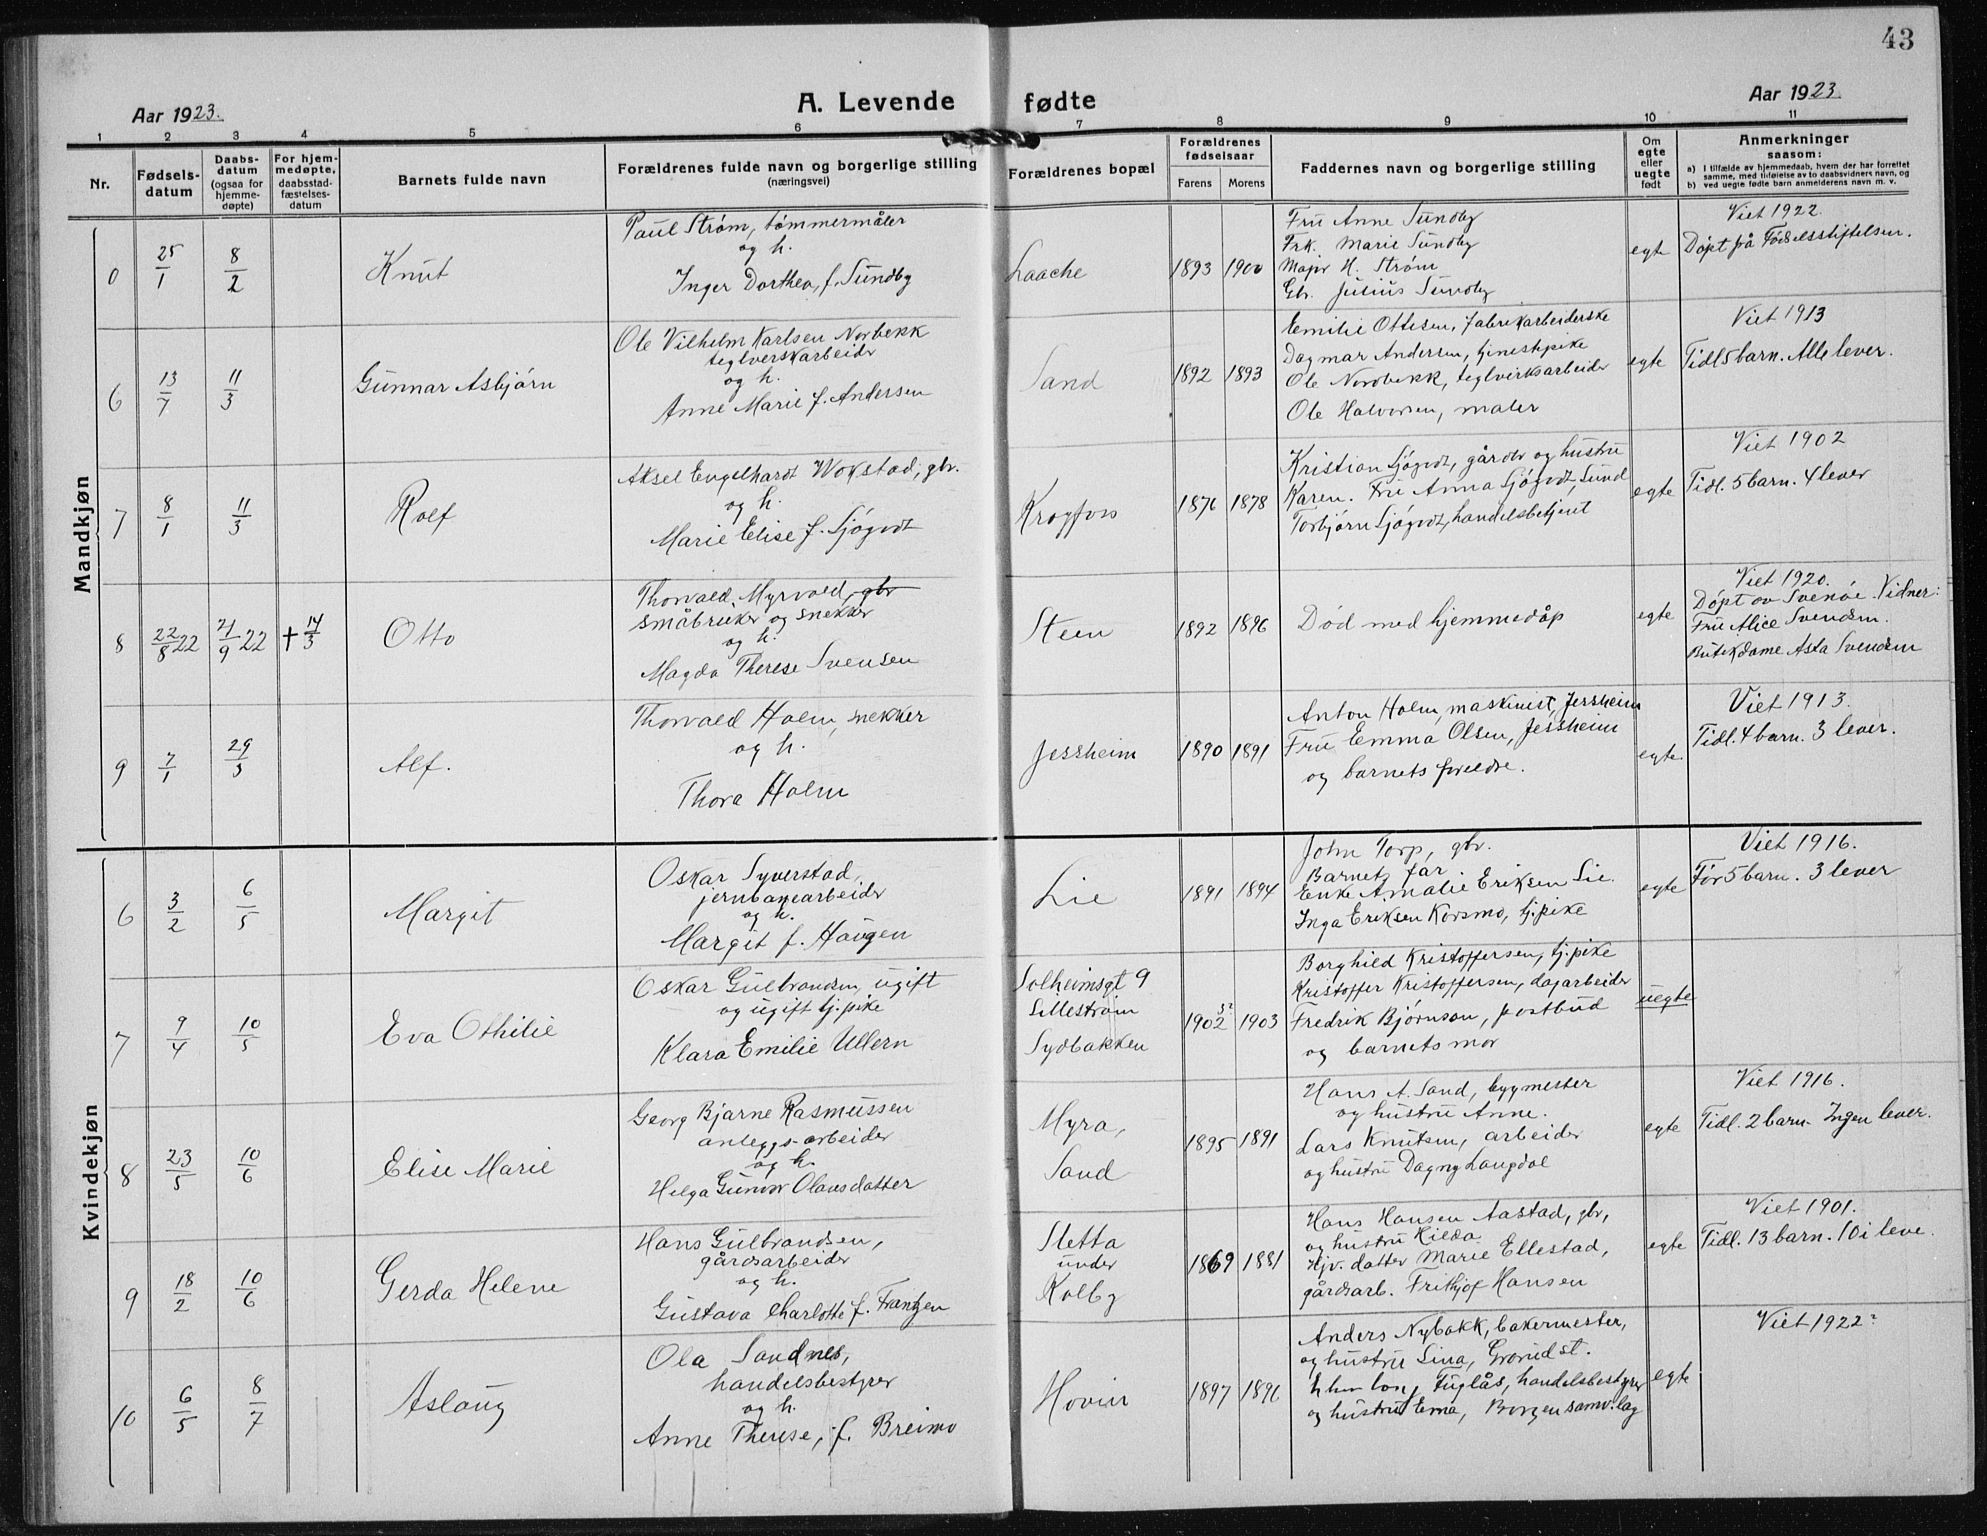 43
Aar 1923.
A. Levende fødte
Aar 1923
1 2 3 4 5 6 7 8 9 10 11
Nr.
Fødsels-
datum
Daabs-
datum
(ogsaa for
hjemme-
døpte)
For hjem-
medøpte,
daabsstad-
fæstelses-
datum
Barnets fulde navn
Forældrenes fulde navn og borgerlige stilling
(næringsvei)
Forældrenes bopæl
Forældrenes
fødselsaar
Farens Morens
Faddernes navn og borgerlige stilling
Om
egte
eller
uegte
født
Anmerkninger
saasom:
a) I tilfælde av hjemmedaab, hvem der har forrettet
samme, med tilføielse av to daabsvidners navn, og
b) ved uegte fødte barn anmelderens navn m. v.
Mandkjøn
0 25/1 8/2 Knut
Paul Strøm, tømmermåler
og h.
Inger Dorthea, f. Sundby
Laache 1893 1900
Fru Anne Sundby
Frk. Marie Sundby
Major H. Strøm
Gbr. Julius Sundby
egte
Viet 1922.
Døpt på Fødselsstiftelsen.
6 13/7 11/3 Gunnar Asbjørn
Ole Vilhelm Karlsen Norbekk
teglverskarbeidr
og h.
Anne Marie f. Andersen
Sand 1892 1893
Emilie Ottesen, fabrikarbeiderske
Dagmar Andersen, tjenestpike
Ole Nordbekk, teglverksarbeider
Ole Halvorsen, maler
egte
Viet 1913
Tidl 5 barn. Alle lever.
7 8/1 11/3 Rolf
Aksel Engelhardt Wokstad, gbr.
og h.
Marie Elise f. Sjøgodt
Krogfoss 1876 1878
Kristian Sjøgodt, gårdbr og hustru
Karen. Fru Anna Sjøgodt, Sund
Torbjørn Sjøgodt, handelsbetjent
egte
Viet 1902
Tidl. 5 barn. 4 lever
8 22/8 22 21/9 22 + 14/3 Otto
Thorvald Myrvold, gbr
småbruker og snekker
og h.
Magda Therese Svensen
Steen 1892 1896
Død med hjemmedåp
egte
Viet 1920.
Døpt av Svenøe. Vidner:
Fru Alice Svendsen.
Butikdame Asta Svendsen
9 7/1 29/3 Alf.
Thorvald Holm, snekker
og h.
Thora Holm
Jessheim 1890 1891
Anton Holm, maskinist, Jessheim
Fru Emma Olsen, Jessheim
og barnets foreldre.
egte
Viet 1913.
Tidl. 4 barn. 3 lever.
Kvindekjøn
6 3/2 6/5 Margit
Oskar Syverstad,
jernbanearbeidr
og h.
Margit f. Haugen
Lie 1891 1894
John Torp, gbr.
Barnets far
Enke Amalie Eriksen Lie.
Inga Eriksen Korsmo, tj.pike
egte
Viet 1916.
Før 5 barn. 3 lever
7 9/4 10/5 Eva Othilie
Oskar Gulbrandsen, ugift
og ugift tj.pike
Klara Emilie Ullern
Solheimsgt 9
Lillestrøm
Sydbakken
1902 5? 1903
Borghild Kristoffersen, tj.pike
Kristoffer Kristoffersen, dagarbeider
Fredrik Bjørnson, postbud
og barnets mor
uegte
8 23/5 10/6 Elise Marie
Georg Bjarne Rasmussen
anleggs-arbeider
og h.
Helga Gunvor Olausdatter
Myra,
Sand
1895 1891
Hans A. Sand, bygmester
og hustru Anne.
Lars Knutsen, arbeider
og hustru Dagny Langdal
egte
Viet 1916.
Tidl. 2 barn. Ingen lever.
9 18/2 10/6 Gerda Helene
Hans Gulbrandsen,
gårdsarbeidr
og h.
Gustava Charlotte f. Frantzen
Sletta
under
Kolby
1869 1881
Hans Hansen Aastad, gbr,
og hustru Hilda
Hjv. datter Marie Ellestad,
gårdsarb. Frithjof Hansen
egte
Viet 1901.
Tidl. 13 barn. 10 i leve.
10 6/5 8/7 Aslaug
Ola Sandnes,
handelsbestyrer
og h.
Anne Therese, f. Breimo
Hovin 1897 1896
Anders Nybakk, bakermester,
og hustru Lina, Grorud st.
Fuglås, handelsbestyrer
og hustru Erna, Borgen samv.lag
egte
Viet 1922?